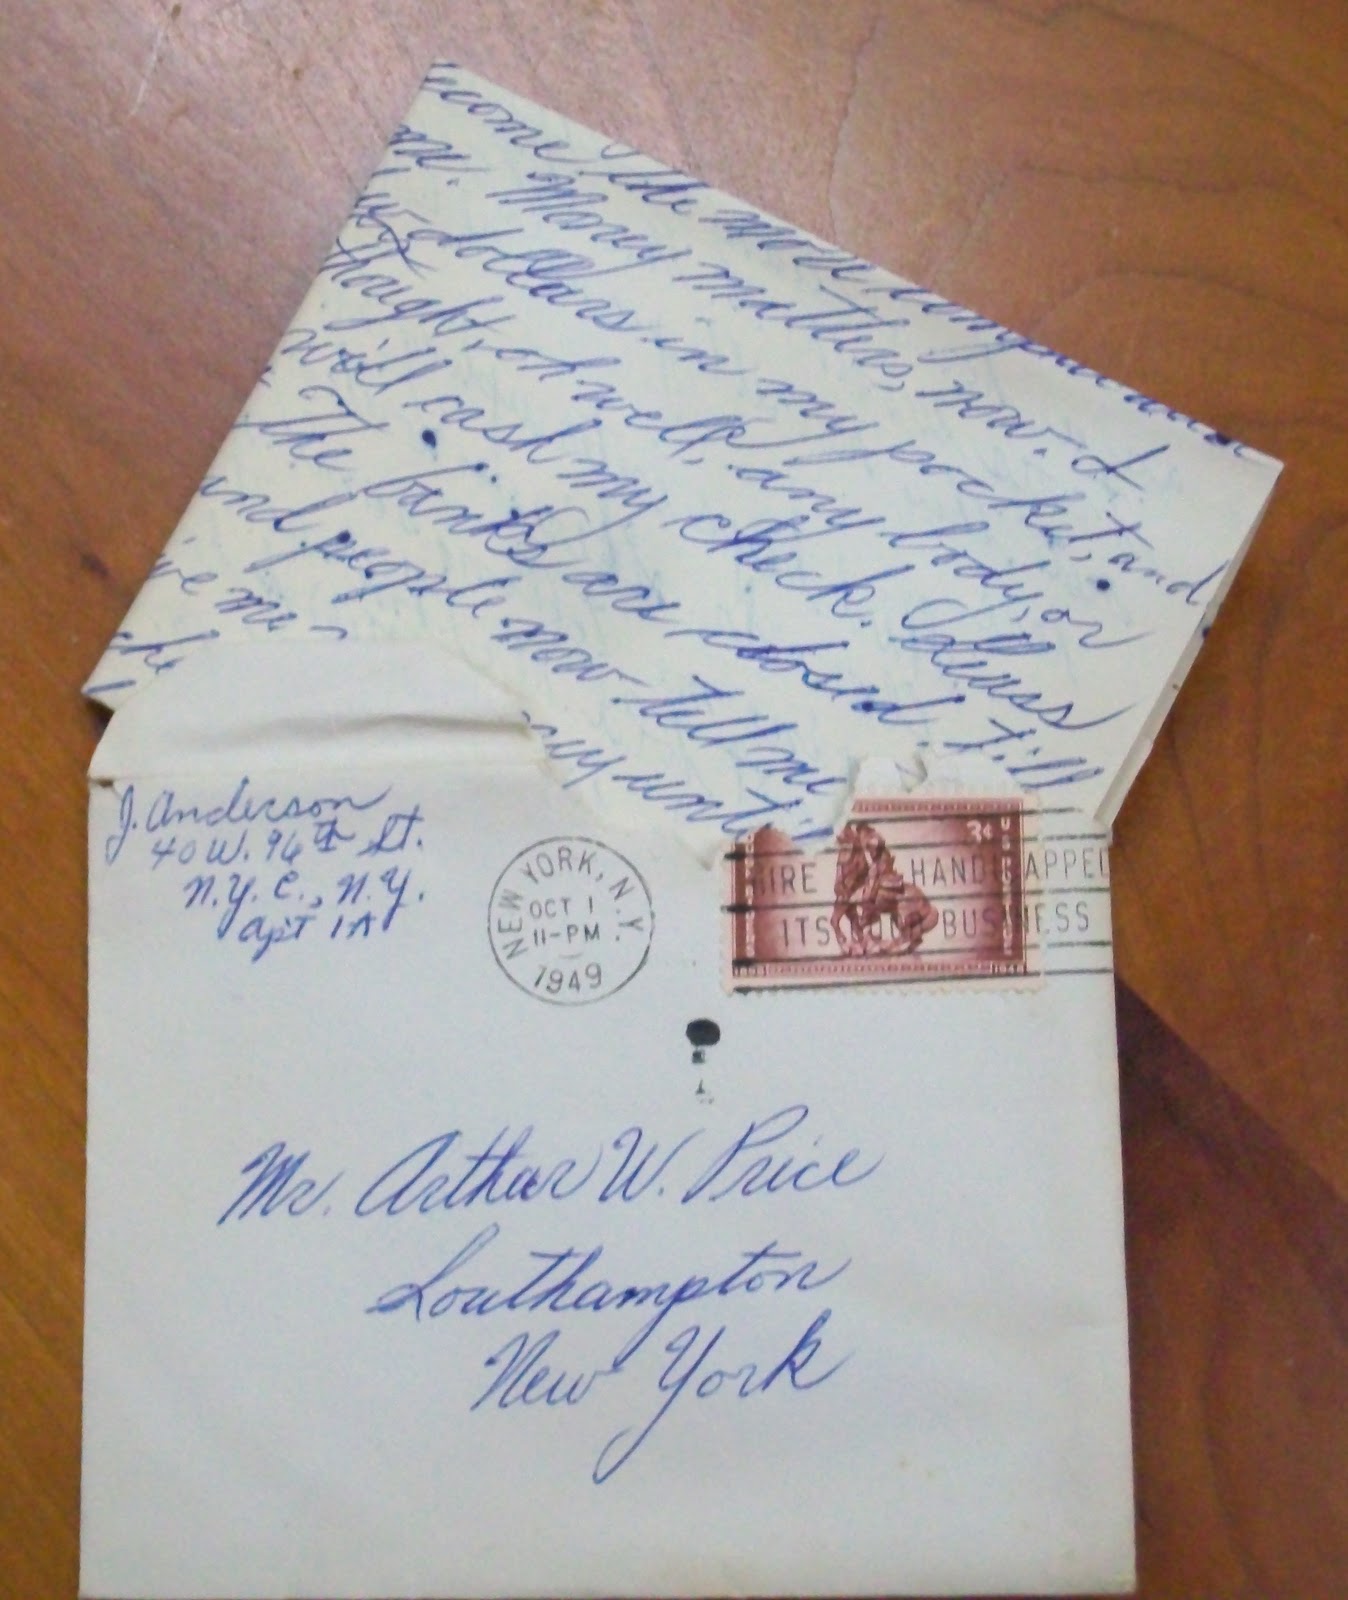 ecome the more complicated
me. Money matters, now. I
few dollars in my pocket, and
thought, oh well, any body, or
will cash my check. Alass
The banks are closed till
and people now tell me
ive me
until
che
J. Anderson
40 W. 96th St.
N.Y.C., N.Y.
Apt 1A
NEW YORK, N.Y.
OCT 1
11-PM
1949
3¢
HIRE HANDICAPPED
ITS YOUR BUSINESS
Mr. Arthur W. Price
Southampton
New York